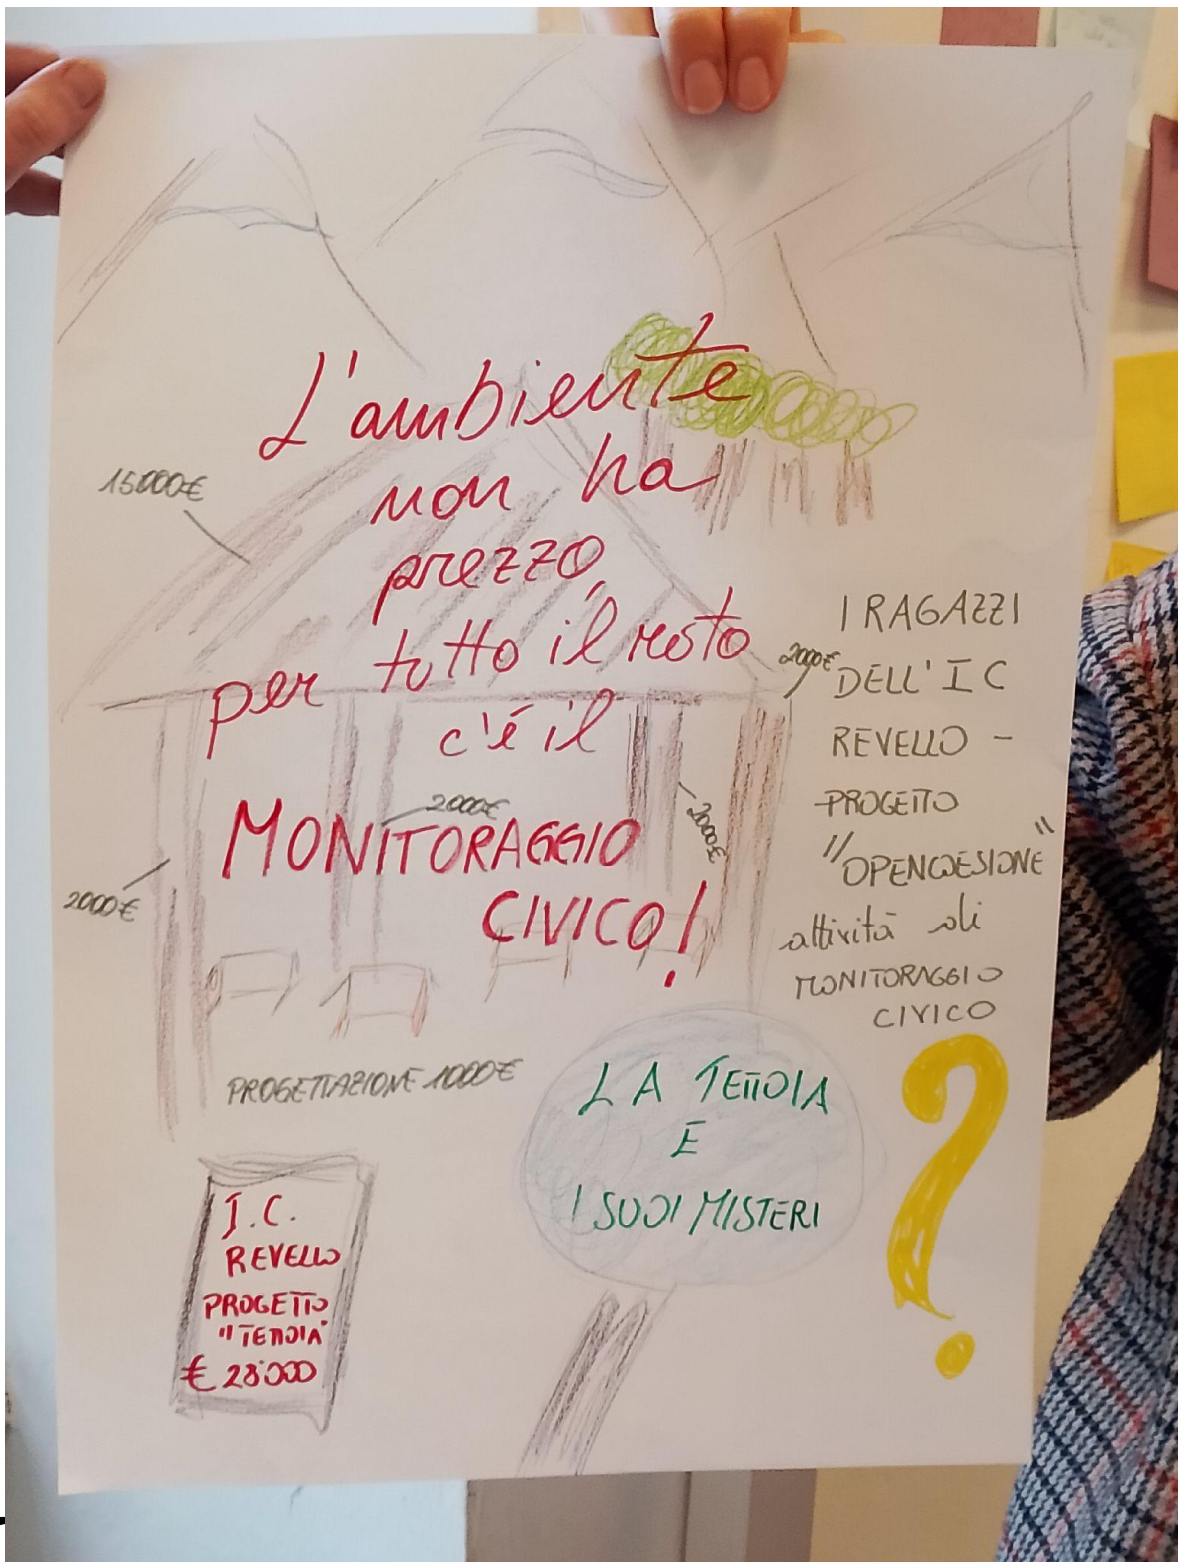 L'ambiente
non ha
prezzo,
per tutto il resto
c'é il
MONITORAGGIO
CIVICO!
15000€
2000€
2000€
2000€
2000€
PROGETTAZIONE 1000€
I RAGAZZI
DELL'I C
REVELLO -
-PROGETTO
"OPENCOESIONE"
attività di
MONITORAGGIO
CIVICO
LA TETTOIA
E
I SUOI MISTERI
?
I.C.
REVELLO
PROGETTO
"TETTOIA"
€ 28000